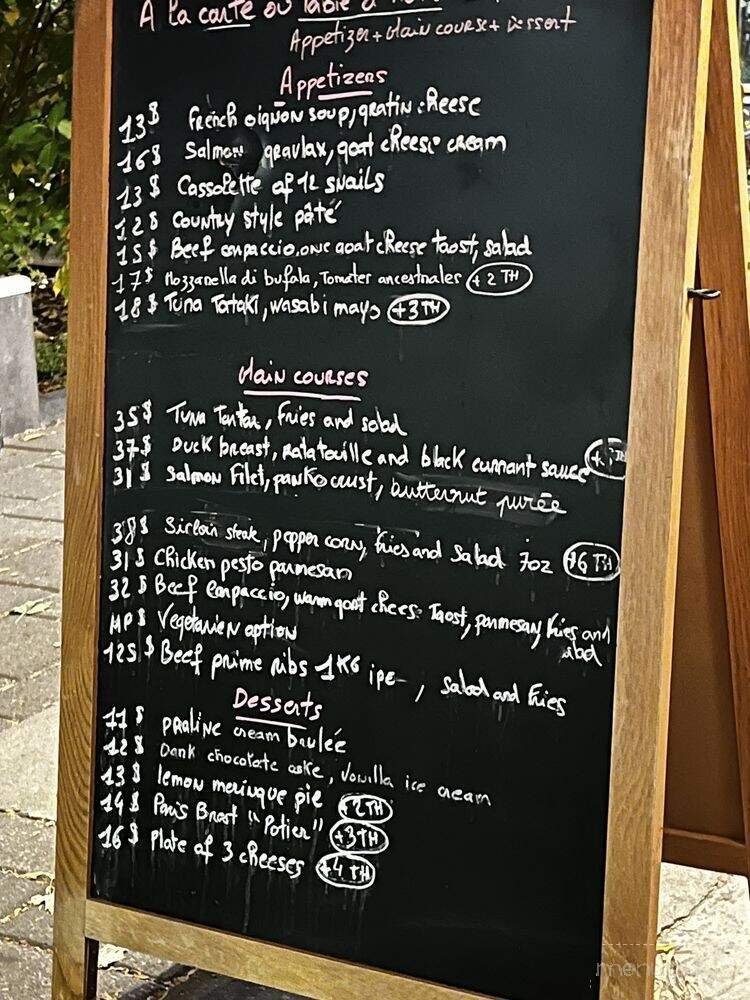 A la carte ou Table d'
Appetizer + Main course + Dessert
Appetizers
13$ French oignon soup, gratin cheese
16$ Salmon gravlax, goat cheese cream
13$ Cassolette of 12 snails
12$ Country style pâté
15$ Beef carpaccio, one goat cheese toast, salad
17$ Mozzarella di bufala, Tomates ancestrales +2 TH
18$ Tuna Tataki, wasabi mayo +3 TH
Main courses
35$ Tuna Tartar, Fries and salad
37$ Duck breast, ratatouille and black currant sauce
31$ Salmon Filet, panko crust, butternut purée
38$ Sirloin steak, pepper corn, fries and salad 7oz $6 TH
31$ Chicken pesto parmesan
32$ Beef Carpaccio, warm goat cheese Toast, parmesan, fries and
salad
MP$ Vegetarien option
125$ Beef prime ribs 1KG , salad and fries
Desserts
11$ praline cream brulée
12$ Dark chocolate cake, Vanilla ice cream
13$ lemon meringue pie +2 TH
14$ Paris Brest "Potier" +3 TH
16$ Plate of 3 cheeses +4 TH